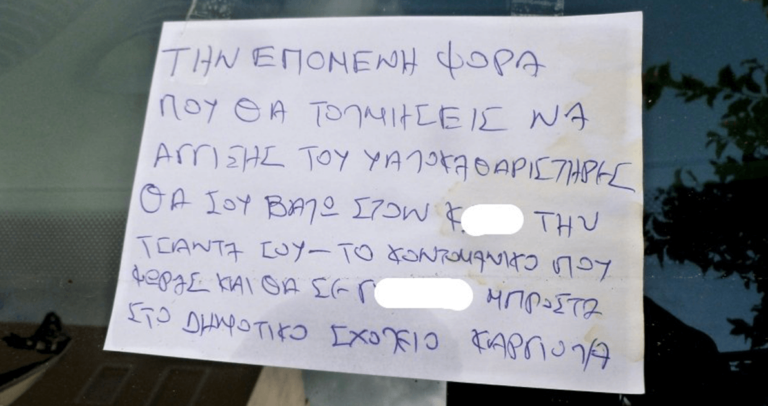 ΤΗΝ ΕΠΟΜΕΝΗ ΦΟΡΑ
ΠΟΥ ΘΑ ΤΟΛΜΗΣΕΙΣ ΝΑ
ΑΓΓΙΣΗΣ ΤΟΥ ΥΑΛΟΚΑΘΑΡΙΣΤΗΡΕΣ
ΘΑ ΣΟΥ ΒΑΛΩ ΣΤΟΝ Κ ΤΗΝ
ΤΣΑΝΤΑ ΣΟΥ – ΤΟ ΚΟΝΤΟΜΑΝΙΚΟ ΠΟΥ
ΦΟΡΑΣ ΚΑΙ ΘΑ ΣΕ Γ ΜΠΡΟΣΤΑ
ΣΤΟ ΔΗΜΟΤΙΚΟ ΣΧΟΛΕΙΟ ΚΑΡΓΙΟΛΑ